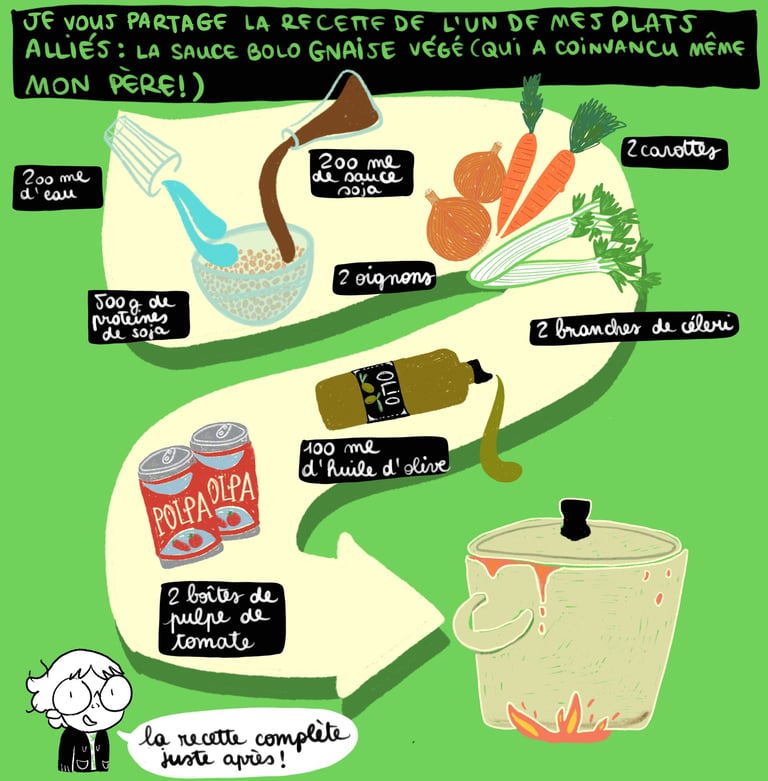 JE VOUS PARTAGE LA RECETTE DE L'UN DE MES PLATS
ALLIÉS : LA SAUCE BOLO GNAISE VÉGÉ (QUI A COINVANCU MÊME
MON PÈRE!)
200 ml
d'eau
200 ml
de sauce
soja
2 carottes
500 g de
protéines
de soja
2 oignons
2 branches de céleri
OLIO
100 ml
d'huile d'olive
POLPA
OLPA
2 boîtes de
pulpe de
tomate
la recette complète
juste après !